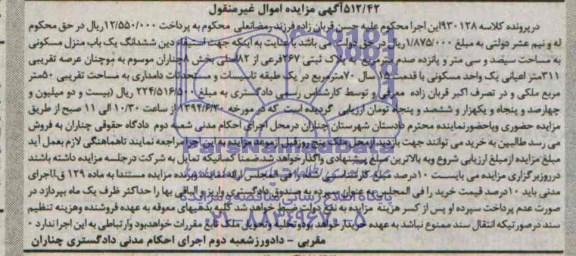 ۵۱۲/۴۲ آگهی مزایده اموال غیرمنقول
درپرونده کلاسه ۹۳۰۱۲۸ این اجرا محکوم علیه حسن قربان زاده فرزند رمضانعلی محکوم به پرداخت ۱۲/۵۵۰/۰۰۰ ریال در حق محکوم
له و نیم عشر دولتی به مبلغ ۱/۸۷۵/۰۰۰ ریال در حق دولت می باشد با عنایت به اینکه جهت استیفاء دین ششدانگ یک باب منزل مسکونی
به مساحت سیصد و سی متر و پانزده صدم مترمربع به پلاک ثبتی ۲۶۷ فرعی از ۸۲ اصلی بخش چناران موسوم به بوچنان عرصه تقریبی
۳۱۱ متر اعیانی یک واحد مسکونی با قدمت ۱۵ سال ۷۰ مترمربع در یک طبقه تاسیسات و مستحدثات دامداری به مساحت تقریبی ۵۰ متر
مربع ملکی و در تصرف اکبر قربان زاده معرفی و توسط کارشناس رسمی دادگستری به مبلغ ۲۲۴/۵۱۶/۵۰۰ ریال (بیست و دو میلیون و
چهارصد و پنجاه و یکهزار و ششصد و پنجاه تومان ارزیابی گردیده است که در مورخه ۱۳۹۴/۶/۳۰ از ساعت ۱۰/۳۰ الی ۱۱ صبح از طریق
مزایده حضوری وباحضورنماینده محترم دادستان شهرستان چناران درمحل اجرای احکام مدنی شعبه دوم دادگاه حقوقی چناران به فروش
می رسد طالبین به خرید می توانند جهت بازدید از محل تا پنج روزقبل از موعد مزایده به این اجرا مراجعه نمایند تاهماهنگی لازم بعمل آید
مبلغ مزایده ازمبلغ ارزیابی شروع وبه بالاترین مبلغ پیشنهادی واگذار خواهد شد ضمنا کسانیکه تمایل به شرکت درجلسه مزایده داشته باشند
درروزبرگزاری مزایده می بایست ۱۰ درصد مبلغ کارشناسی شده را فی المجلس ارائه نمایند برنده مزایده مستندا به ماده ۱۲۹ ق.اجرای
مدنی باید ۱۰ درصد قیمت خرید را فی المجلس به عنوان سپرده به صندوق دادگستری واریز و الباقی بها را حداکثر ظرف یک ماه بپردازد در
صورت عدم پرداخت سپرده او پس از کسر هزینه مزایده به نفع دولت ضبط خواهد شد کلیه بدهیهای معوقه به عهده فروشنده وهزینه تنظیم
سند درصورتیکه انتقال سند ممنوع نباشد به عهده خریدار خواهد بود وتخلیه وتحویل ملک تابع مقررات خواهدبود وارتباطی به این اجرا ندارد -
مقربی - دادورزشعبه دوم اجرای احکام مدنی دادگستری چناران